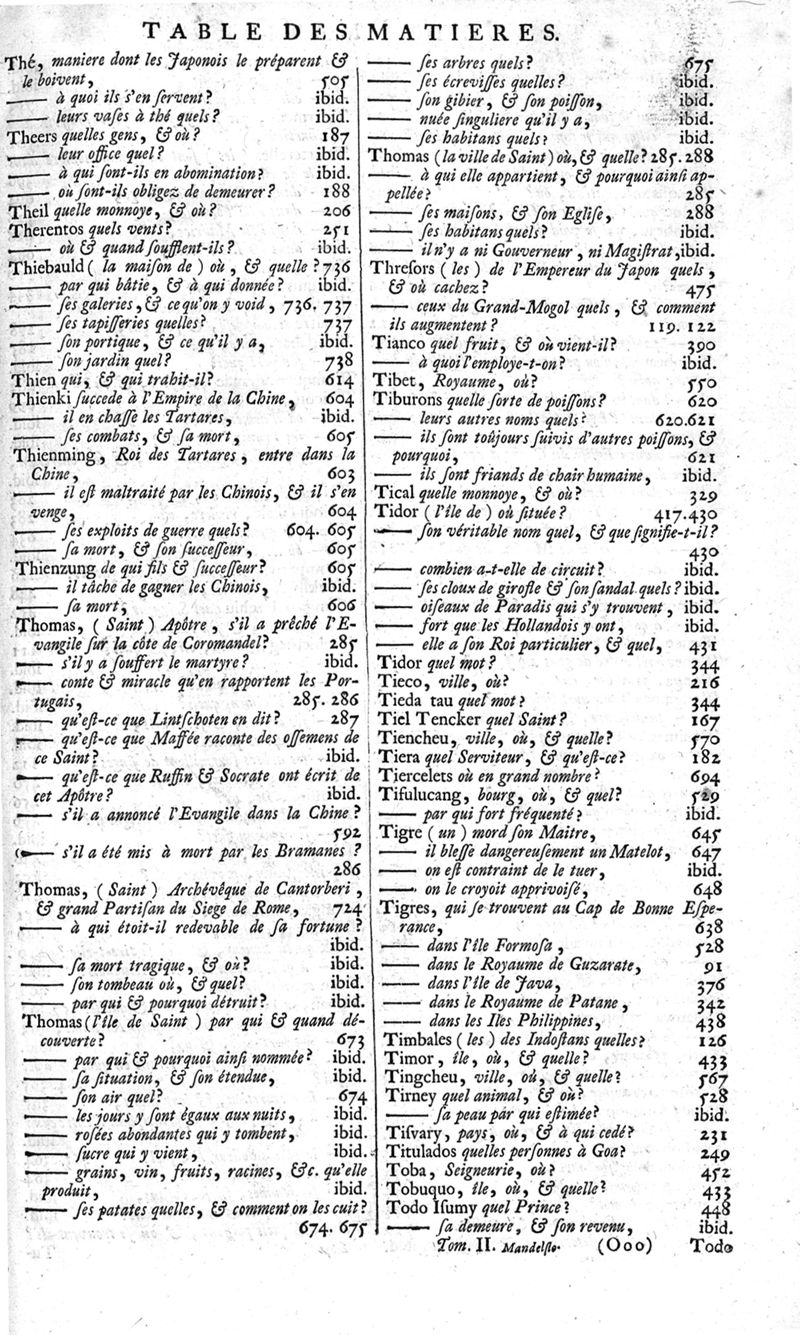 TABLE DES MATIERES.
Thé, maniere dont les Japonois le préparent &
le boivent, 505
—— à quoi ils s'en ſervent? ibid.
—— leurs vaſes à thé quels? ibid.
Theers quelles gens, & où? 187
—— leur office quel? ibid.
—— à qui ſont-ils en abomination? ibid.
—— où ſont-ils obligez de demeurer? 188
Theil quelle monnoye, & où? 206
Therentos quels vents? 251
—— où & quand ſoufflent-ils? ibid.
Thiebauld ( la maiſon de ) où, & quelle? 736
—— par qui bâtie, & à qui donnée? ibid.
—— ſes galeries, & ce qu'on y void, 736. 737
—— ſes tapiſſeries quelles? 737
—— ſon portique, & ce qu'il y a, ibid.
—— ſon jardin quel? 738
Thien qui, & qui trahit-il? 614
Thienki ſuccede à l'Empire de la Chine, 604
—— il en chaſſe les Tartares, ibid.
—— ſes combats, & ſa mort, 605
Thienming, Roi des Tartares, entre dans la
Chine, 603
—— il eſt maltraité par les Chinois, & il s'en
venge, 604
—— ſes exploits de guerre quels? 604. 605
—— ſa mort, & ſon ſucceſſeur, 605
Thienzung de qui fils & ſucceſſeur? 605
—— il tâche de gagner les Chinois, ibid.
—— ſa mort, 606
Thomas, ( Saint ) Apôtre, s'il a prêché l'E-
vangile ſur la côte de Coromandel? 285
—— s'il y a ſouffert le martyre? ibid.
—— conte & miracle qu'en rapportent les Por-
tugais, 285. 286
—— qu'eſt-ce que Lintſchoten en dit? 287
—— qu'eſt-ce que Maffée raconte des oſſemens de
ce Saint? ibid.
—— qu'eſt-ce que Ruffin & Socrate ont écrit de
cet Apôtre? ibid.
—— s'il a annoncé l'Evangile dans la Chine?
592
—— s'il a été mis à mort par les Bramanes?
286
Thomas, ( Saint ) Archévêque de Cantorberi,
& grand Partiſan du Siege de Rome, 724
—— à qui étoit-il redevable de ſa fortune?
ibid.
—— ſa mort tragique, & où? ibid.
—— ſon tombeau où, & quel? ibid.
—— par qui & pourquoi détruit? ibid.
Thomas (l'île de Saint ) par qui & quand dé-
couverte? 673
—— par qui & pourquoi ainſi nommée? ibid.
—— ſa ſituation, & ſon étendue, ibid.
—— ſon air quel? 674
—— les jours y ſont égaux aux nuits, ibid.
—— roſées abondantes qui y tombent, ibid.
—— ſucre qui y vient, ibid.
—— grains, vin, fruits, racines, &c. qu'elle
produit, ibid.
—— ſes patates quelles, & comment on les cuit?
674. 675
—— ſes arbres quels? 675
—— ſes écreviſſes quelles? ibid.
—— ſon gibier, & ſon poiſſon, ibid.
—— nuée ſinguliere qu'il y a, ibid.
—— ſes habitans quels? ibid.
Thomas (la ville de Saint) où, & quelle? 285. 288
—— à qui elle appartient, & pourquoi ainſi ap-
pellée? 285
—— ſes maiſons, & ſon Egliſe, 288
—— ſes habitans quels? ibid.
—— il n'y a ni Gouverneur, ni Magiſtrat, ibid.
Threſors ( les ) de l'Empereur du Japon quels,
& où cachez? 475
—— ceux du Grand-Mogol quels, & comment
ils augmentent? 119. 122
Tianco quel fruit, & où vient-il? 390
—— à quoi l'employe-t-on? ibid.
Tibet, Royaume, où? 550
Tiburons quelle ſorte de poiſſons? 620
—— leurs autres noms quels? 620.621
—— ils ſont toûjours ſuivis d'autres poiſſons, &
pourquoi, 621
—— ils ſont friands de chair humaine, ibid.
Tical quelle monnoye, & où? 329
Tidor ( l'île de ) où ſituée? 417.430
—— ſon véritable nom quel, & que ſignifie-t-il?
430
—— combien a-t-elle de circuit? ibid.
—— ſes cloux de girofle & ſon ſandal quels? ibid.
—— oiſeaux de Paradis qui s'y trouvent, ibid.
—— fort que les Hollandois y ont, ibid.
—— elle a ſon Roi particulier, & quel, 431
Tidor quel mot? 344
Tieco, ville, où? 216
Tieda tau quel mot? 344
Tiel Tencker quel Saint? 167
Tiencheu, ville, où, & quelle? 570
Tiera quel Serviteur, & qu'eſt-ce? 182
Tiercelets où en grand nombre? 694
Tifulucang, bourg, où, & quel? 529
—— par qui fort fréquenté? ibid.
Tigre ( un ) mord ſon Maître, 645
—— il bleſſe dangereuſement un Matelot, 647
—— on eſt contraint de le tuer, ibid.
—— on le croyoit apprivoiſé, 648
Tigres, qui ſe trouvent au Cap de Bonne Eſpe-
rance, 638
—— dans l'île Formoſa, 528
—— dans le Royaume de Guzarate, 91
—— dans l'île de Java, 376
—— dans le Royaume de Patane, 342
—— dans les Iles Philippines, 438
Timbales ( les ) des Indoſtans quelles? 126
Timor, île, où, & quelle? 433
Tingcheu, ville, où, & quelle? 567
Tirney quel animal, & où? 528
—— ſa peau par qui eſtimée? ibid.
Tiſvary, pays, où, & à qui cedé? 231
Titulados quelles perſonnes à Goa? 249
Toba, Seigneurie, où? 452
Tobuquo, île, où, & quelle? 433
Todo Iſumy quel Prince? 448
—— ſa demeure, & ſon revenu, ibid.
Tom. II. Mandelſlo. (Ooo) Todo